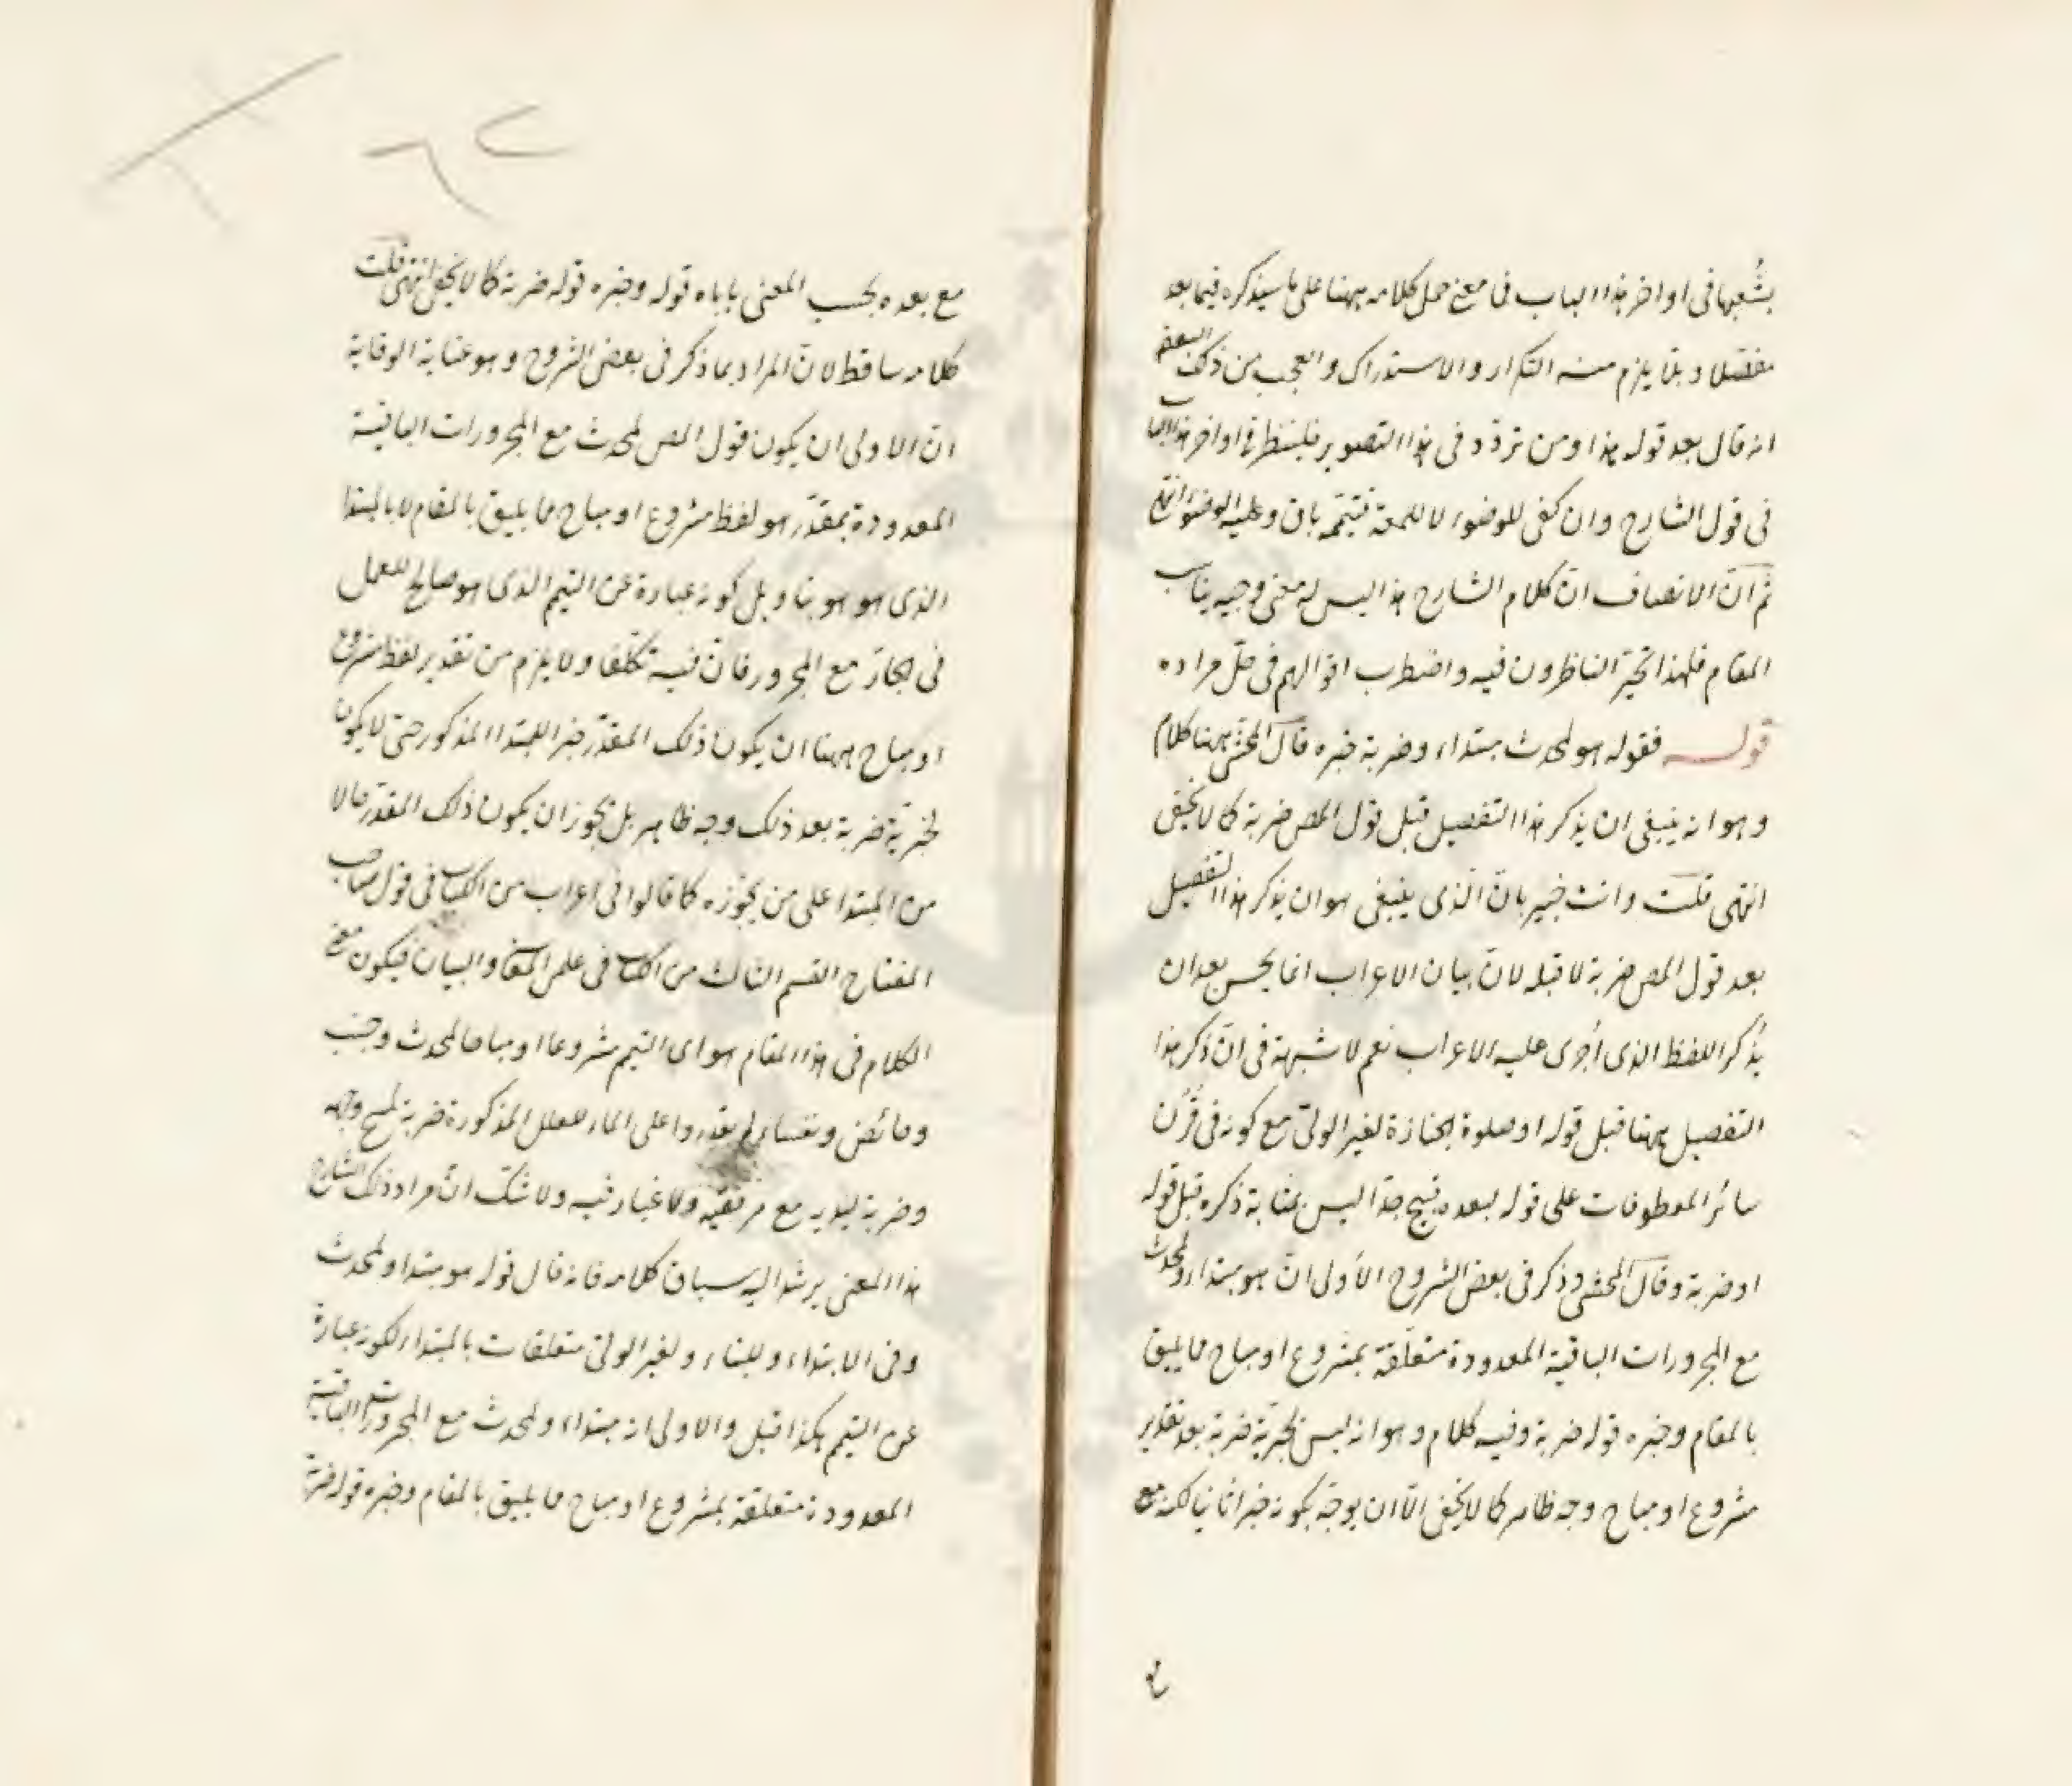 بشعبها فى اواخر هذا الباب فما معنى حمل كلامه ههنا على ما سيذكره فيما بعد
مفصلا وبما يلزم منه التكرار والاستدراك والعجب من ذلك البعض
انه قال بعد قوله هذا ومن تردد فى هذا التصوير فلينظر فى اواخر هذا الباب
فى قول الشارح وان كفى للوضوء لا للمعة فيتيمم باق وعليه الوضوء انتهى
ثم ان الانصاف ان كلام الشارح هذا ليس له معنى وجيه يناسب
المقام فلهذا تحير الناظرون فيه واضطرب اقوالهم فى حل مراده
قوله فقوله هو لمحدث مبتداء وضربة خبره قال المحشى ههنا كلام
وهو انه ينبغى ان يذكر هذا التفصيل قبل قول المص ضربة كما لا يخفى
انتهى قلت وانت خبير بان الذى ينبغى هو ان يذكر هذا التفصيل
بعد قول المص ضربة لا قبله لان بيان الاعراب انما يحسن بعد ان
يذكر اللفظ الذى اجرى عليه الاعراب نعم لا شبهة فى ان ذكر هذا
التفصيل ههنا قبل قوله او صلوة الجنازة لغير الولى مع كونه فى قرن
سائر المعطوفات على قوله لبعده قبيح جدا ليس بمثابة ذكره قبل قوله
او ضربة وقال المحشى وذكر فى بعض الشروح الاولى ان هو مبتداء ولمحدث
مع المجرورات الباقية المعدودة متعلقة بمشروع او مباح مما يليق
بالمقام وخبره قوله ضربة وفيه كلام وهو انه ليس لخبرية ضربة بعد تقدير
مشروع او مباح وجه ظاهر كما لا يخفى الا ان يوجه بكونه خبرا ثانيا لكنه مع
مع بعده بحسب المعنى يا باه قوله وخبره قوله ضربة كما لا يخفى انتهى قلت
كلامه ساقط لان المراد بما ذكر فى بعض الشروح وهو عناية الوقاية
ان الاولى ان يكون قول المص لمحدث مع المجرورات الباقية
المعدودة بمقدر هو لفظ مشروع او مباح مما يليق بالمقام لا بالمبتدا
الذى هو هو بتاويل كونه عبارة عن التيمم الذى هو صالح للعمل
فى الجار مع المجرور فان فيه تكلفا ولا يلزم من تقدير لفظ مشروع
او مباح ههنا ان يكون ذلك المقدر خبر اللمبتدا المذكور حتى لا يكون
لخبرية ضربة بعد ذلك وجه ظاهر بل يجوز ان يكون ذلك المقدر حالا
من المبتدا على من يجوزه كما قالوا فى اعراب من الكتاب فى قول صاحب
المفتاح القسم الثالث من الكتاب فى علم المعانى والبيان فيكون معنى
الكلام فى هذا المقام هو اى التيمم مشروعا او مباحا لمحدث وجنب
وحائض ونفساء لم يقدروا على الماء للعلل المذكورة ضربة لمسح وجهه
وضربة ليديه مع مرفقيه ولا غبار فيه ولا شك ان مراد ذلك الشارح
هذا المعنى يرشد اليه سياق كلامه فانه قال قوله هو مبتدا ولمحدث
وفى الابتداء وللبناء ولغير الولى متعلقات بالمبتداء لكونه عبارة
عن التيمم هكذا قيل والاولى انه مبتداء ولمحدث مع المجرورات الباقية
المعدودة متعلقة بمشروع او مباح مما يليق بالمقام وخبره قوله ضربة